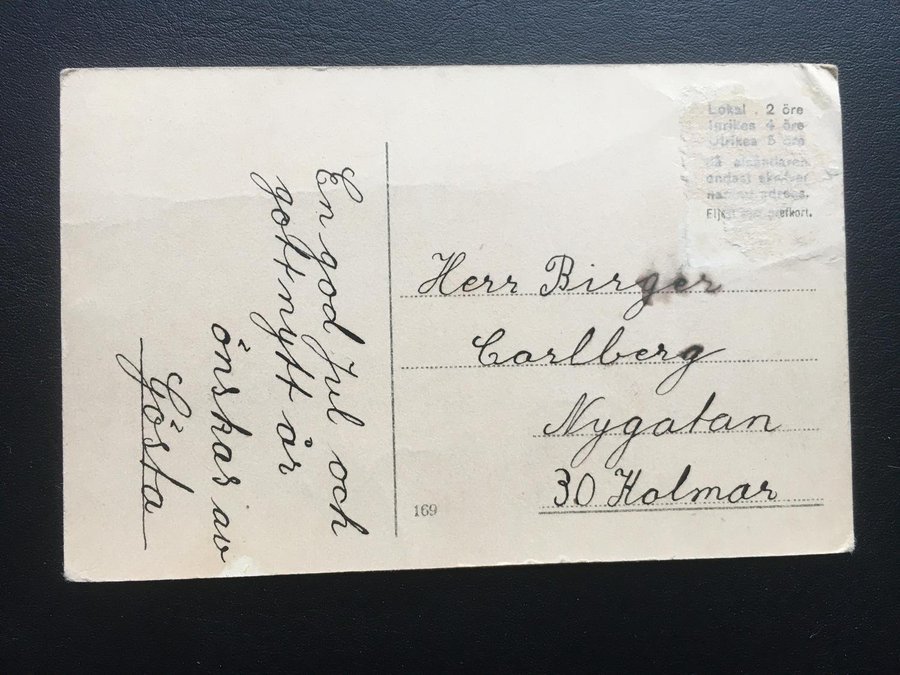 En god Jul och
gott nytt år
önskas av
Gösta
Lokal 2 öre
Inrikes 4 öre
Utrikes 5 öre
då afsändaren
endast skrifver
namn o. adress.
Eljest som brefkort.
Herr Birger
Carlberg
Nygatan
30 Kalmar
169